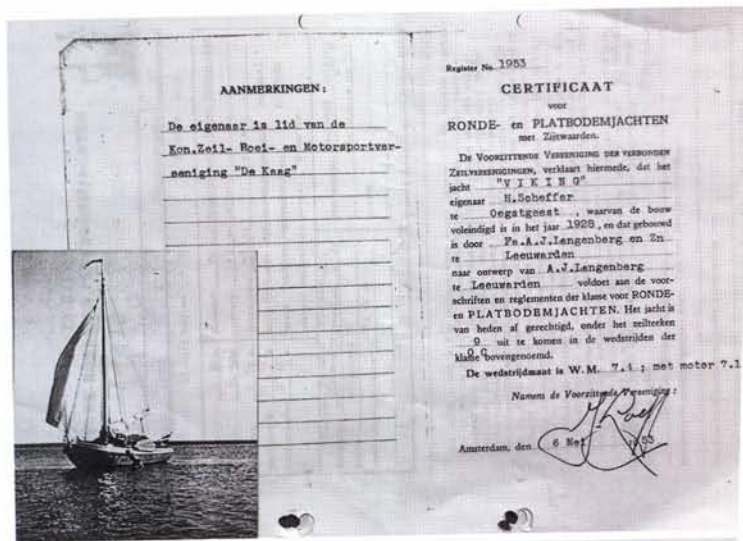 AANMERKINGEN:
De eigenaar is lid van de
Kon.Zeil- Roei- en Motorsportver-
eeniging "De Kaag"
Register No. 1953
CERTIFICAAT
voor
RONDE- en PLATBODEMJACHTEN
met Zijzwaarden.
De VOORZITTENDE VEREENIGING DER VERBONDEN
ZEILVEREENIGINGEN, verklaart hiermede, dat het
jacht "VIKING"
eigenaar H.Scheffer
te Oegstgeest, waarvan de bouw
voleindigd is in het jaar 1928, en dat gebouwd
is door Fa.A.J.Langenberg en Zn
te Leeuwarden
naar ontwerp van A.J.Langenberg
te Leeuwarden voldoet aan de voor-
schriften en reglementen der klasse voor RONDE-
en PLATBODEMJACHTEN. Het jacht is
van heden af gerechtigd, onder het zeilteeken
uit te komen in de wedstrijden der
klasse bovengenoemd.
De wedstrijdmaat is W.M. 7.4 ; met motor 7.1
Namens de Voorzittende Vereeniging:
Amsterdam, den 6 Mei 1953